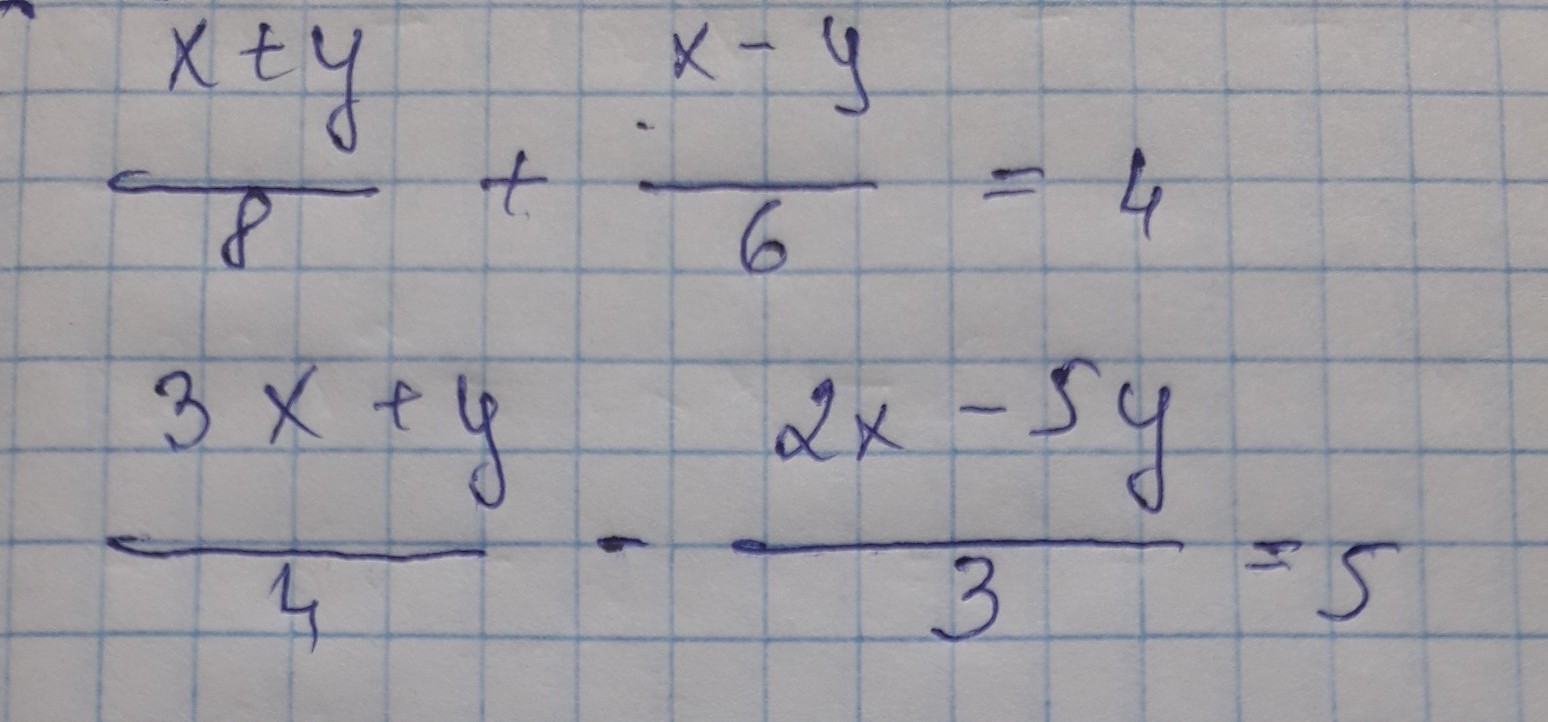 x + y / 8 + x - y / 6 = 4
3x + y / 4 - 2x - 5y / 3 = 5